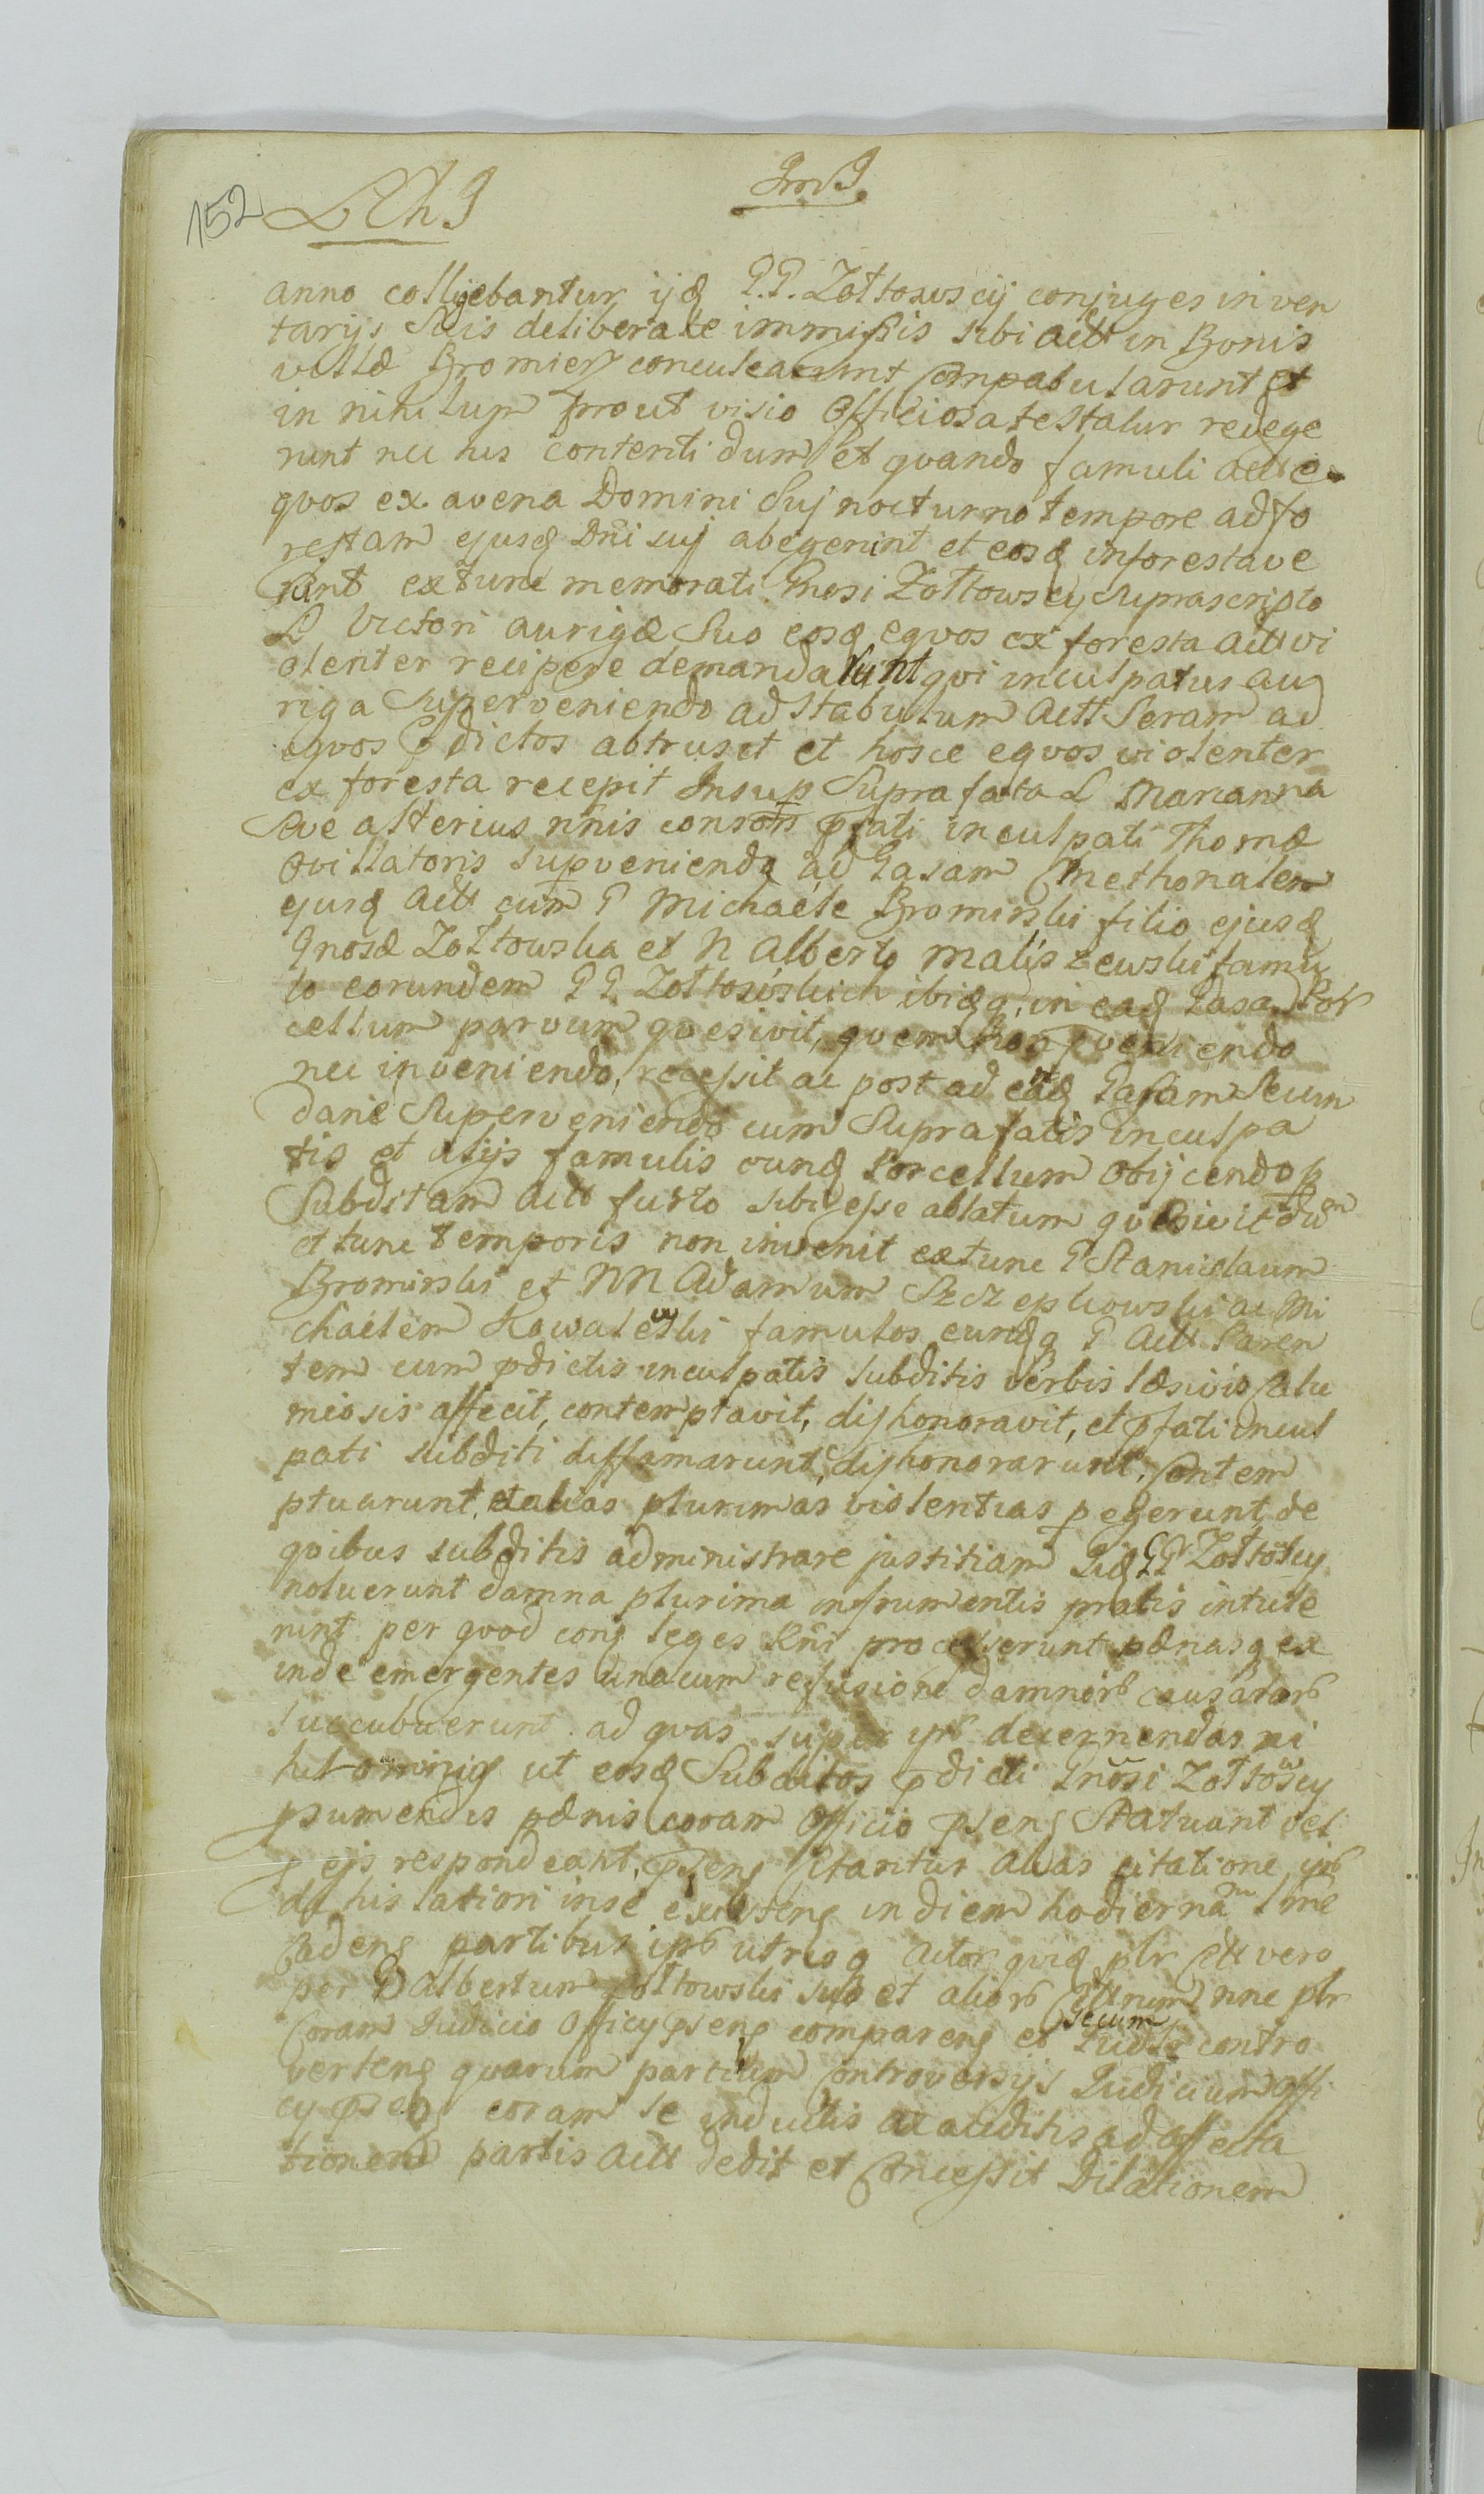 152
JmJ
anno colligebantur ijdẽ G.G. Zołtowscij conjuges inven
tarijs suis deliberate immissis sibi actt in Bonis
villæ Bromierz conculcarunt compabularunt et
in nihilum prout visio officiosa testatur redege
runt nec his contenti dum et qvando famuli actt e
qvos ex avena Domini Suj nocturno tempore ad fo
restam ejusdẽ Dñi suj abegerint et eosdẽ inforestave
rint extunc memorati Gnosi Zołtowscij suprascripto
L Victori aurigæ Suo eosdẽ eqvos ex foresta actt vi
olenter recipere demandarunt qvi inculpatus au
riga superveniendo ad stabulum actt Seram ad
eqvos pdictos abtrusit et hosce eqvos violenter
ex foresta recepit Insup Suprafata L Marianna
sive alterius nñis consors pfati inculpati Thomæ
ovillatoris supveniendo ad Casam Cmethonalem
ejusdẽ actt cum G Michaele Bromirski filio ejusdẽ
Gnosæ Zołtowska et N Alberto Maliszewski famu
lo eorundem G G Zołtowskich ibidẽq in eadẽ Casa Por
cellum parvum qvæsivit, qvem non pveniendo
nec inveniendo, recessit ac post ad eandẽ Casam Secun
darie Superveniendo cum Suprafatis inculpa
tis et alijs famulis eundẽ Porcellum obijcendo p
Subditam actt furto sibi esse ablatum qvæsivit dum
et tunc temporis non invenit extunc G Stanislaum
Bromirski et NN Adamum Szczepkowski ac Mi
chaelem Kowalewski famulos eundẽq G actt Paren
tem cum pdictis inculpatis subditis verbis læsivis calu
miosis affecit, contemptavit, dishonoravit, et pfati incul
pati subditi diffamarunt, dishonorarunt, contem
ptuarunt, et alias plurimas violentias pegerunt de
qvibus subditis administrare justitiam iidẽ GG Zołtowscy
noluerunt damna plurima in frumentis pratis intule
runt per qvod contra leges Rñi processerunt pænasq ex
inde emergentes unacum refusione damnorũ causatorũ
succubuerunt ad qvas super ipsis decernendas ni
hilominus ut eosdẽ Subditos pdicti Gnosi Zołtowscy
psumendis pænis coram officio psenti statuant vel
p eis respondeant, psens citantur alias citatione ipsis
de his latiori inse existens in diem hodiernam lmẽ
cadens partibus ipsis utrisq actor qvidẽ plr citt vero
per G Albertum Zołtowski suo et aliorũ cittorum nne plr
coram Judicio officij psenti comparens et secum Judtr contro
vertens qvarum partium controversijs Judicium offi
cij psens coram se inductis ac auditis ad affecta
tionem partis actt dedit et concessit Dilationem